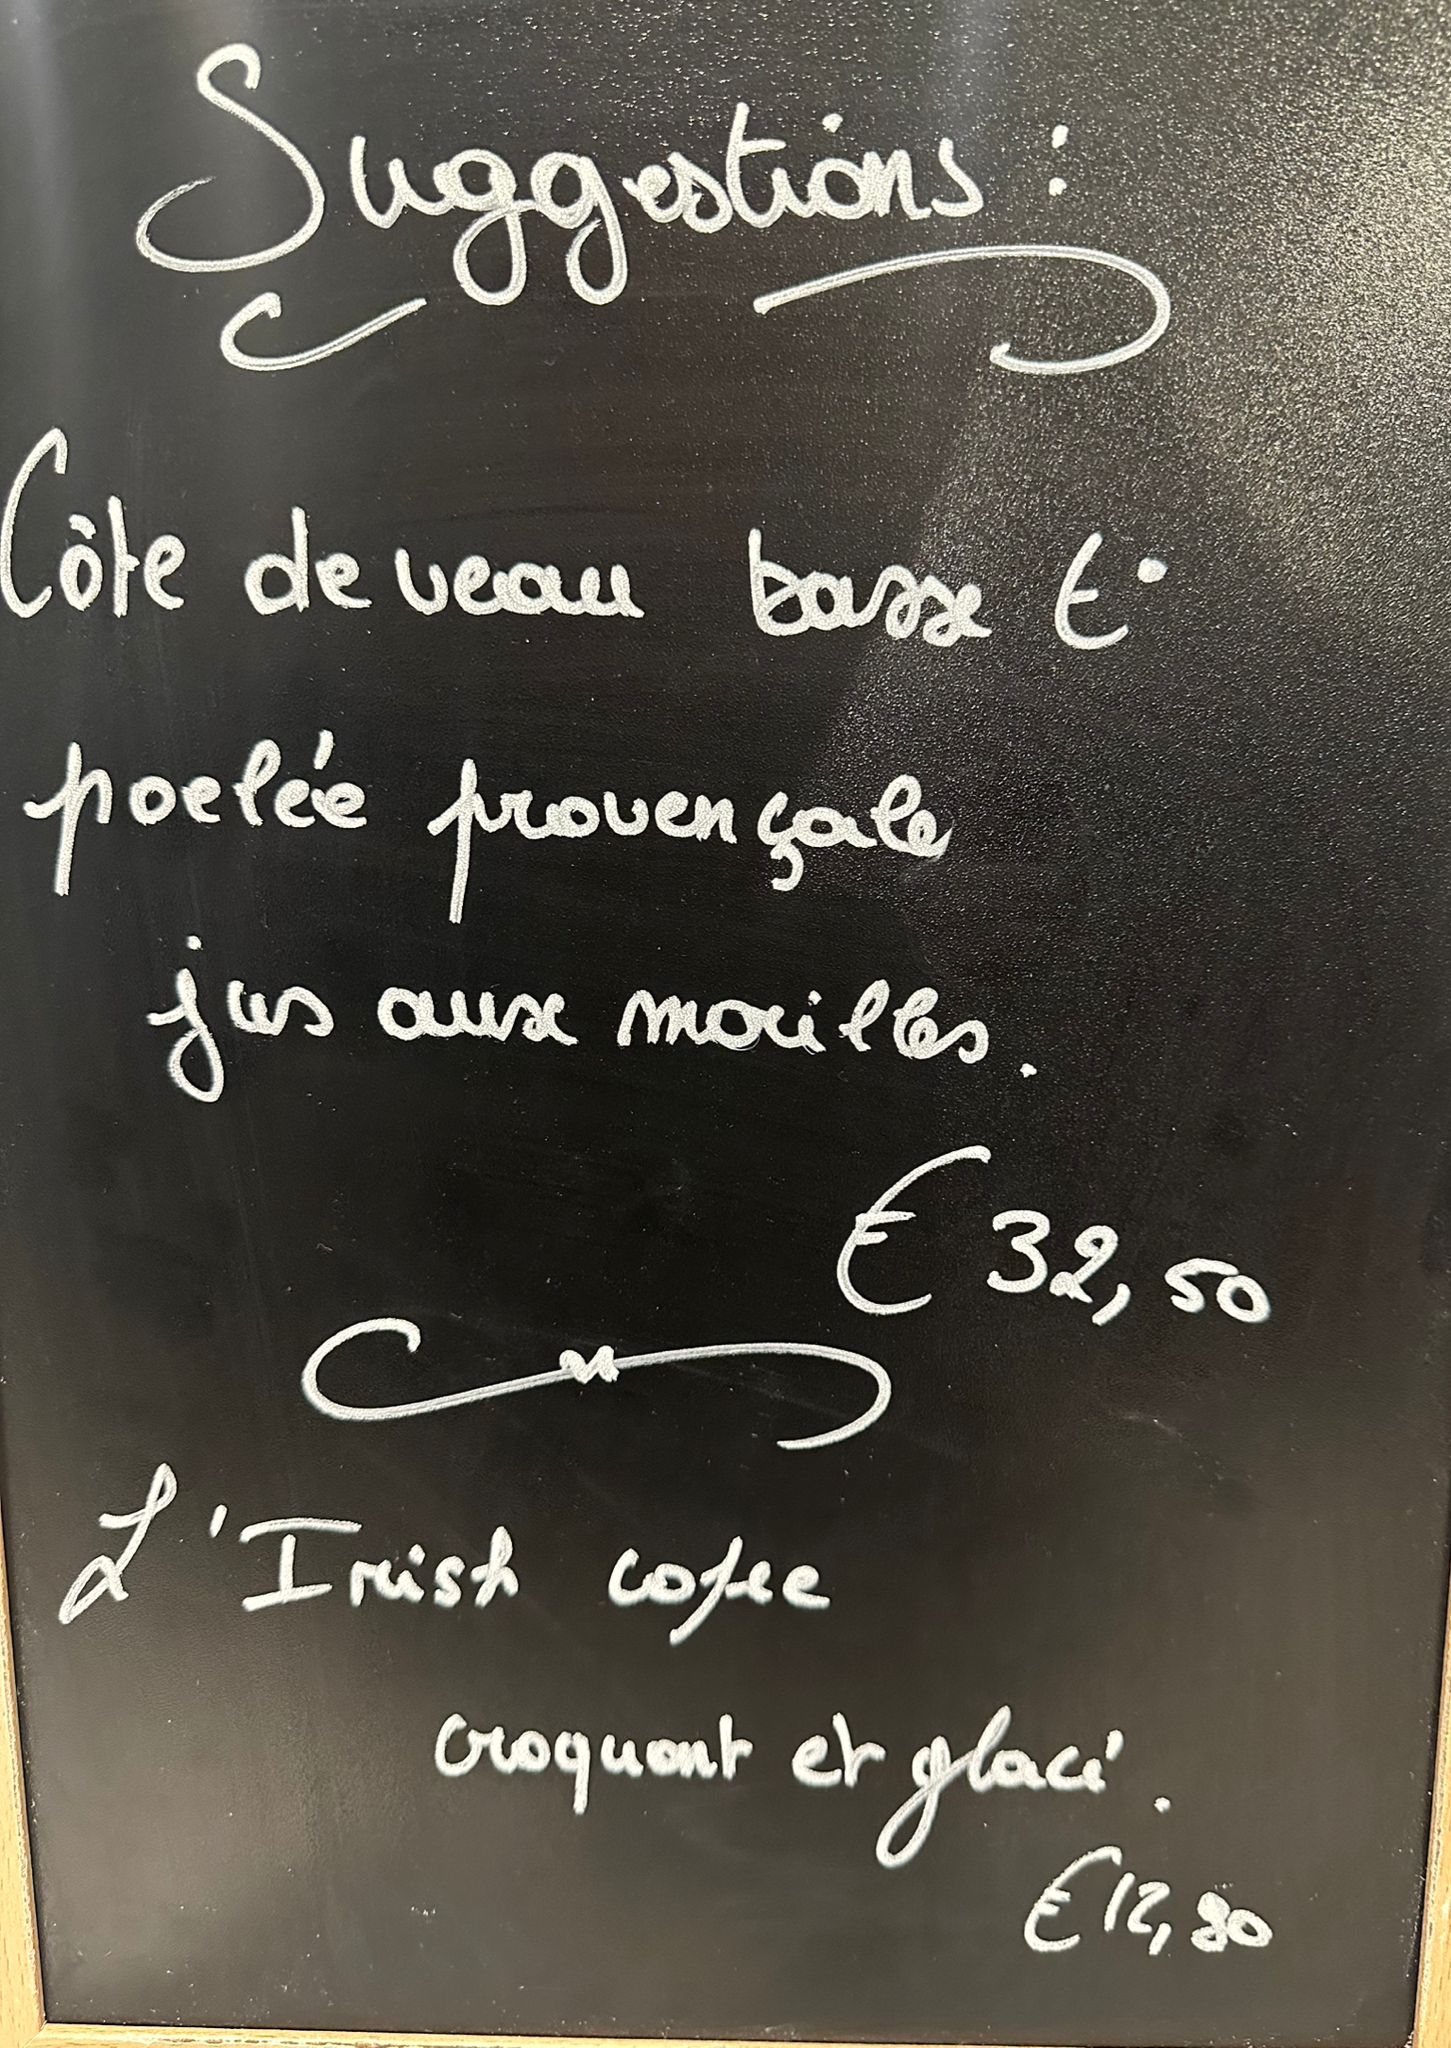 Suggestions :
Côte de veau basse t°
poelée provençale
jus aux morilles.
€ 32,50
L'Irish cofee
croquant et glacé.
€ 12,80